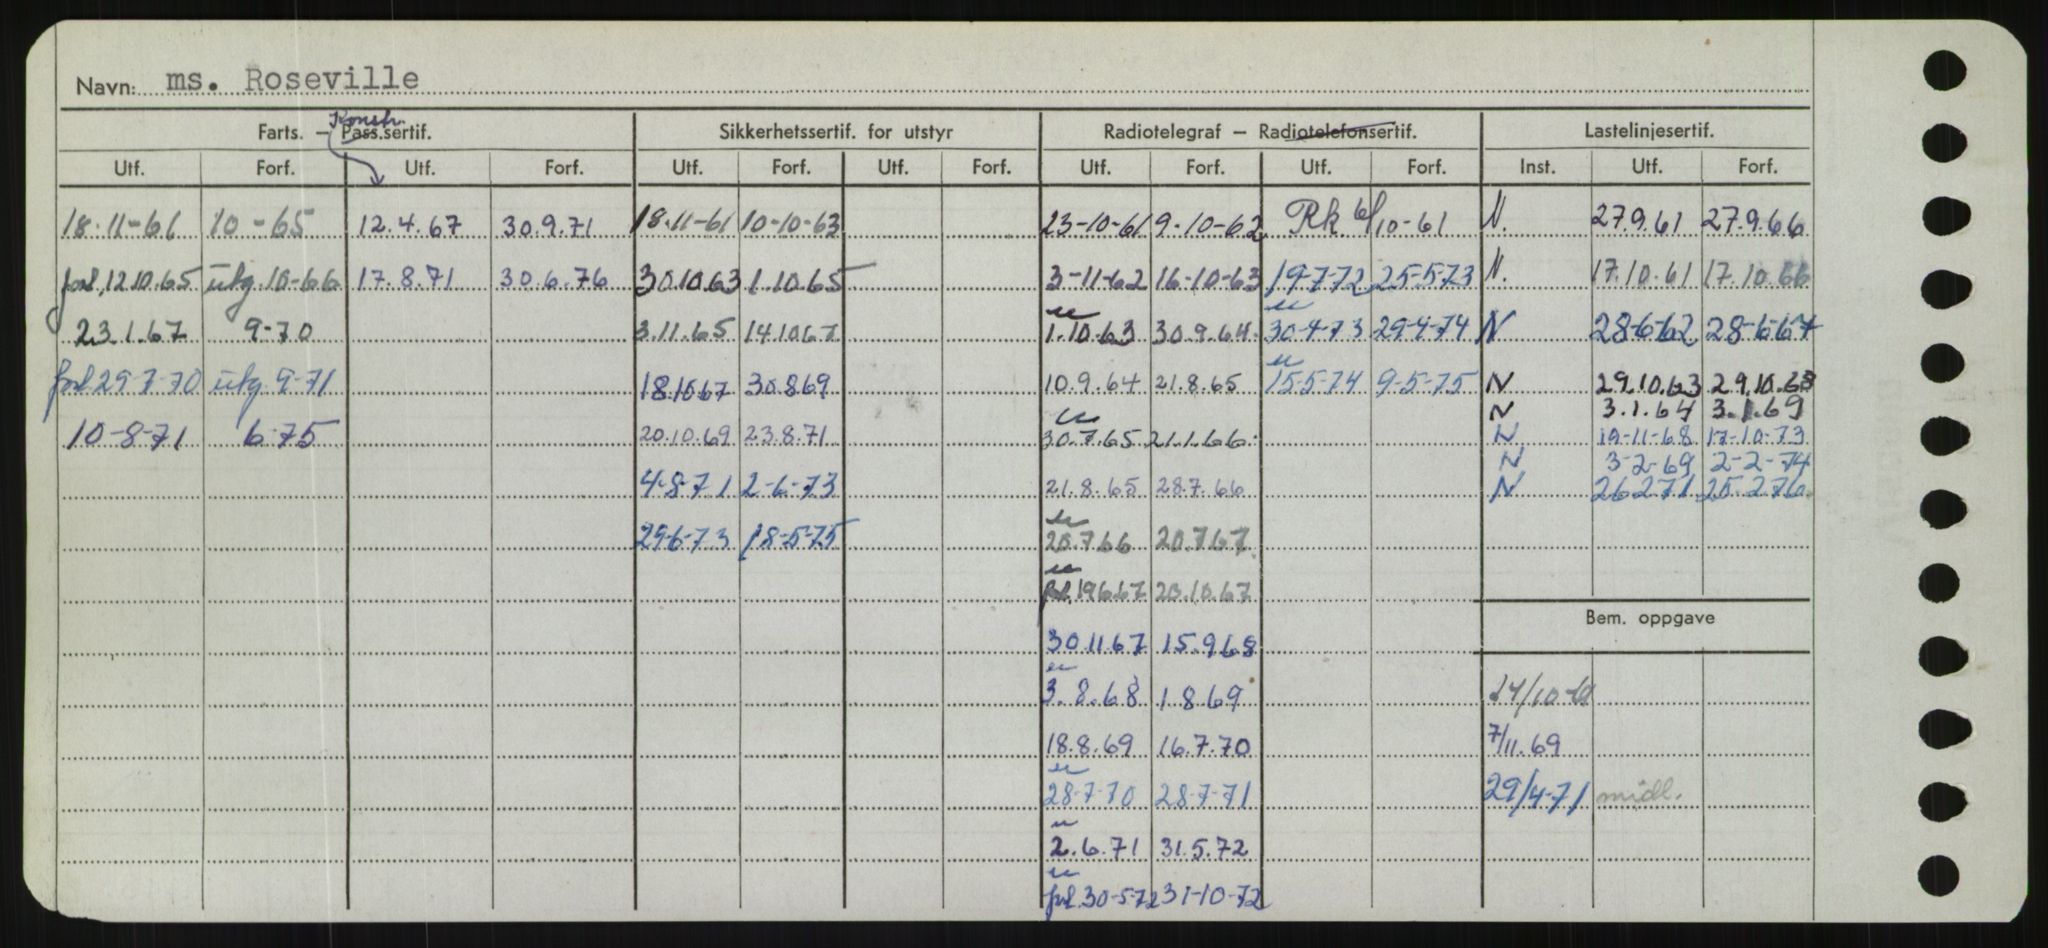 Navn: ms. Roseville
Konstr.
Farts. – Pass.sertif. Sikkerhetssertif. for utstyr Radiotelegraf – Radiotelefonsertif. Lastelinjesertif.
Utf. Forf. Utf. Forf. Utf. Forf. Utf. Forf. Utf. Forf. Utf. Forf. Inst. Utf. Forf.
18-11-61 10-65 12.4.67 30.9.71 18.11-61 10-10-63 23-10-61 9-10-62 Rk 6/10-61 N. 27.9.61 27.9.66
forl. 12.10.65 utg. 10-66 17.8.71 30.6.76 30.10.63 1.10.65 3-11-62 16-10-63 19-7-72 25-5-73 N. 17.10.61 17.10.66
23.1.67 9-70 3.11.65 14.10.67 1.10.63 30.9.64. 30-4-73 29-4-74 N 28-6-62 28-6-67
forl. 29-7-70 utg. 9-71 18.10.67 30.8.69 10.9.64 21.8.65 15-5-74 9-5-75 N 29.10.63 29.10.68
N 3.1.64 3.1.69
10-8-71 6-75 20.10.69 23.8.71 30.7.65 21.1.66. N 19-11-68 17-10-73
N 3-2-69 2-2-74
4-8-71 2-6-73 21.8.65 28.7.66 N 26-2-71 25-2-76
29-6-73 18-5-75 20.7.66 20.7.67
forl. 19.6.67 20.10.67
Bem. oppgave
30.11.67 15.9.68
3.8.68 1.8.69 24/10-61
18.8.69 16.7.70 7/11.69
28-7-70 28-7-71 29/4-71 midl.
2.6.71 31.5.72
forl. 30-5-72 31-10-72